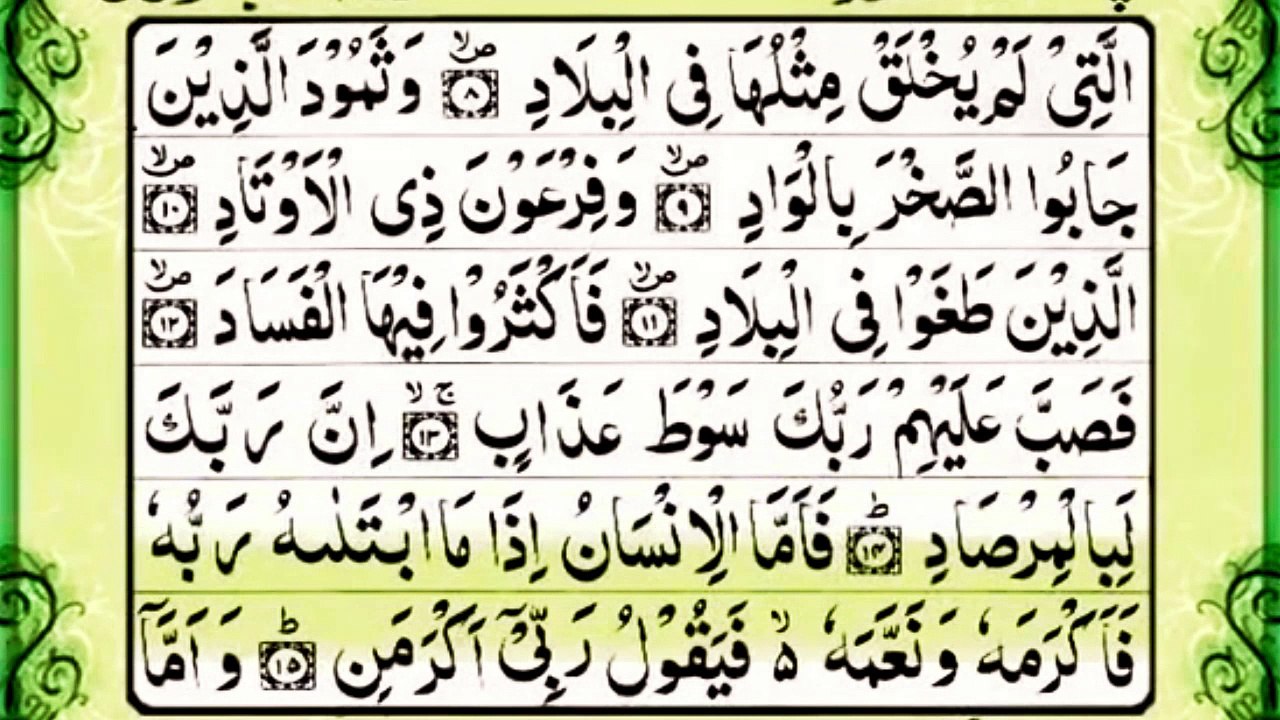 الَّتِىْ لَمْ يُخْلَقْ مِثْلُهَا فِى الْبِلَادِ ۪ۙۛ ﴿٨﴾ وَثَمُوْدَ الَّذِيْنَ
جَابُوا الصَّخْرَ بِالْوَادِ ﴿٩﴾ ۙص وَفِرْعَوْنَ ذِى الْاَوْتَادِ ﴿١٠﴾ ۙص
الَّذِيْنَ طَغَوْا فِى الْبِلَادِ ﴿١١﴾ ۙص فَاَكْثَرُوْا فِيْهَا الْفَسَادَ ﴿١٢﴾ ۙص
فَصَبَّ عَلَيْهِمْ رَبُّكَ سَوْطَ عَذَابٍ ﴿١٣﴾ ۙۚ اِنَّ رَبَّكَ
لَبِالْمِرْصَادِ ﴿١٤﴾ ؕ فَاَمَّا الْاِنْسَانُ اِذَا مَا ابْتَلٰىهُ رَبُّهٗ
فَاَكْرَمَهٗ وَنَعَّمَهٗ ۙ۬ فَيَقُوْلُ رَبِّىْۤ اَكْرَمَنِ ﴿١٥﴾ ؕ وَاَمَّاۤ